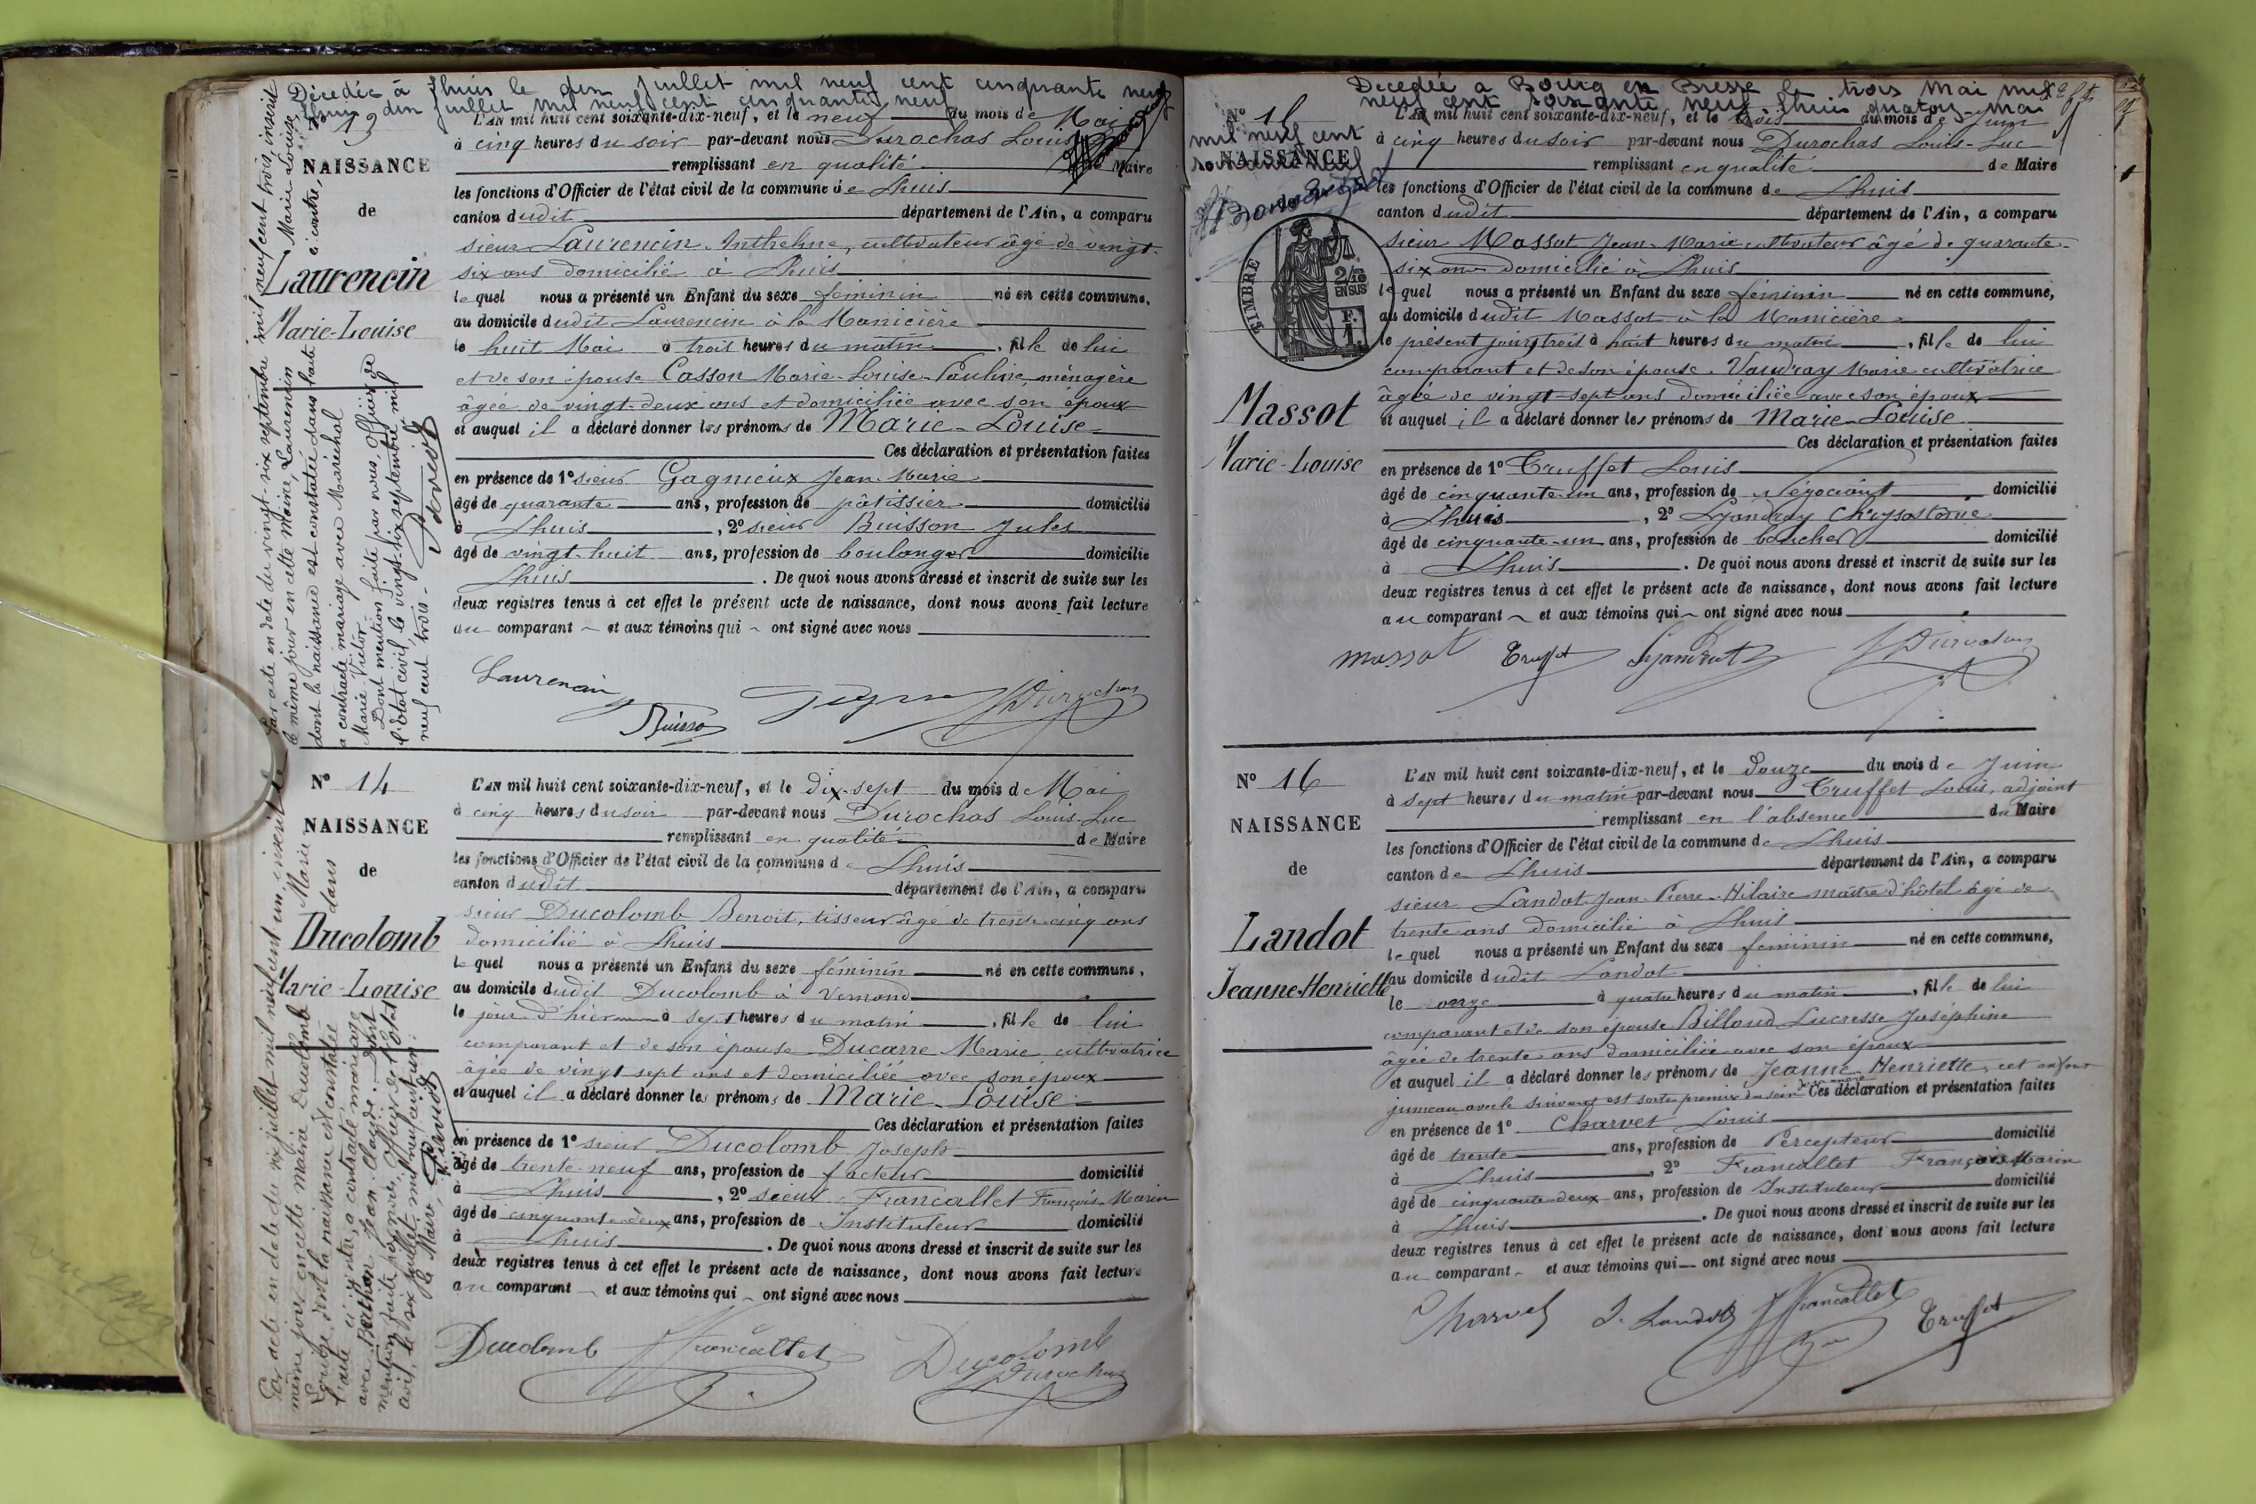 Décédée à Lhuis le dix Juillet mil neuf cent cinquante neuf
Lhuis, dix Juillet mil neuf cent cinquante neuf
N° 13
NAISSANCE
de
Laurencin
Marie-Louise
L'AN mil huit cent soixante-dix-neuf, et le neuf du mois de Mai
à cinq heures du soir par-devant nous Durochas Louis
remplissant en qualité Maire
les fonctions d'Officier de l'état civil de la commune de Lhuis
canton dudit département de l'Ain, a comparu
sieur Laurencin Anthelme, cultivateur âgé de vingt-
six ans domicilié à Lhuis
lequel nous a présenté un Enfant du sexe féminin né en cette commune,
au domicile dudit Laurencin à la Manicière
le huit Mai à trois heures du matin, fille de lui
et de son épouse Casson Marie-Louise-Pauline, ménagère
âgée de vingt-deux ans et domiciliée avec son époux
et auquel il a déclaré donner les prénoms de Marie-Louise
Ces déclaration et présentation faites
en présence de 1° sieur Gagnieux Jean-Marie
âgé de quarante ans, profession de pâtissier domicilié
à Lhuis, 2° sieur Buisson Jules
âgé de vingt-huit ans, profession de boulanger domicilié
Lhuis. De quoi nous avons dressé et inscrit de suite sur les
deux registres tenus à cet effet le présent acte de naissance, dont nous avons fait lecture
au comparant et aux témoins qui ont signé avec nous
Laurencin
Buisson
Durochas
Par acte en date du vingt-six septembre mil neuf cent trois, inscrit
le même jour en cette Mairie, Laurencin Marie Louise
dont la naissance est constatée dans l'acte ci contre,
a contracté mariage avec Maréchal
Marie Victor.
Dont mention faite par nous, Officier de
l'état civil, le vingt-six septembre mil
neuf cent trois.
N° 14
NAISSANCE
de
Ducolomb
Marie-Louise
L'AN mil huit cent soixante-dix-neuf, et le dix-sept du mois de Mai
à cinq heures du soir par-devant nous Durochas Louis-Luc
remplissant en qualité de Maire
les fonctions d'Officier de l'état civil de la commune de Lhuis
canton dudit département de l'Ain, a comparu
sieur Ducolomb Benoit, tisseur âgé de trente cinq ans
domicilié à Lhuis
lequel nous a présenté un Enfant du sexe féminin né en cette commune,
au domicile dudit Ducolomb à Vernond
le jour d'hier à sept heures du matin, fille de lui
comparant et de son épouse Ducarre Marie cultivatrice
âgée de vingt sept ans et domiciliée avec son époux
et auquel il a déclaré donner les prénoms de Marie-Louise
Ces déclaration et présentation faites
en présence de 1° sieur Ducolomb Joseph
âgé de trente-neuf ans, profession de facteur domicilié
à Lhuis, 2° sieur Francallet François-Marin
âgé de cinquante-deux ans, profession de Instituteur domicilié
à Lhuis. De quoi nous avons dressé et inscrit de suite sur les
deux registres tenus à cet effet le présent acte de naissance, dont nous avons fait lecture
au comparant et aux témoins qui ont signé avec nous
Ducolomb Francallet Ducolomb
Durochas
Par acte en date du six juillet mil neuf cent un, inscrit le
même jour en cette mairie Ducolomb Marie
Louise, dont la naissance est constatée dans
l'acte ci-contre, a contracté mariage
avec Berthon Jean Claude. dont
mention faite par nous, Officier de l'état
civil, le six juillet mil neuf cent un.
Le Maire,
Décédée à Bourg en Bresse le trois Mai mil
neuf cent soixante neuf. Lhuis quatorze mai
mil neuf cent
soixante neuf
N° 15
NAISSANCE
TIMBRE
2/10
EN SUS
F.
1.
Massot
Marie-Louise
L'AN mil huit cent soixante-dix-neuf, et le trois du mois de Juin
à cinq heures du soir par-devant nous Durochas Louis-Luc
remplissant en qualité de Maire
les fonctions d'Officier de l'état civil de la commune de Lhuis
canton dudit département de l'Ain, a comparu
sieur Massot Jean-Marie cultivateur âgé de quarante-
six ans domicilié à Lhuis
lequel nous a présenté un Enfant du sexe féminin né en cette commune,
au domicile dudit Massot à la Manicière
le présent jour, trois à huit heures du matin, fille de lui
comparant et de son épouse Vaudray Marie cultivatrice
âgée de vingt-sept ans domiciliée avec son époux
et auquel il a déclaré donner les prénoms de Marie-Louise
Ces déclaration et présentation faites
en présence de 1° Truffet Louis
âgé de cinquante-un ans, profession de Négociant domicilié
à Lhuis, 2° Lyandray Chrysostome
âgé de cinquante-un ans, profession de boucher domicilié
à Lhuis. De quoi nous avons dressé et inscrit de suite sur les
deux registres tenus à cet effet le présent acte de naissance, dont nous avons fait lecture
au comparant et aux témoins qui ont signé avec nous
massot Truffet Durochas
N° 16
NAISSANCE
de
Landot
Jeanne-Henriette
L'AN mil huit cent soixante-dix-neuf, et le Douze du mois de Juin
à sept heures du matin par-devant nous Truffet Louis, adjoint
remplissant en l'absence du Maire
les fonctions d'Officier de l'état civil de la commune de Lhuis
canton de Lhuis département de l'Ain, a comparu
sieur Landot Jean-Pierre-Hilaire maître d'hôtel âgé de
trente ans domicilié à Lhuis
lequel nous a présenté un Enfant du sexe féminin né en cette commune,
au domicile dudit Landot
le onze à quatre heures du matin, fille de lui
comparant et de son épouse Billoud Lucresse Joséphine
âgée de trente ans domiciliée avec son époux
et auquel il a déclaré donner les prénoms de Jeanne-Henriette, cet enfant
jumeau avec le suivant est sortie premier du sein Ces déclaration et présentation faites
en présence de 1° Charvet Louis
âgé de trente ans, profession de Percepteur domicilié
à Lhuis, 2° Francallet François-Marin
âgé de cinquante-deux ans, profession de Instituteur domicilié
à Lhuis. De quoi nous avons dressé et inscrit de suite sur les
deux registres tenus à cet effet le présent acte de naissance, dont nous avons fait lecture
au comparant et aux témoins qui ont signé avec nous
Charvet J. Landot Francallet Truffet